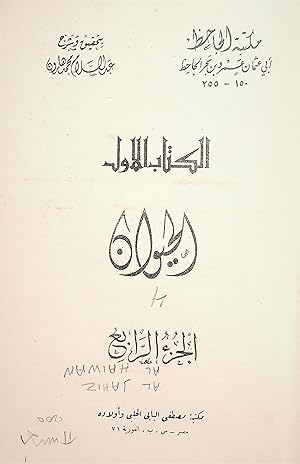 مكتبة الجاحظ
أبي عثمان عمرو بن بحر الجاحظ
١٥٠ - ٢٥٥
بتحقيق وشرح
عبد السلام محمد هارون
الكتاب الأول
الحيوان
الجزء الرابع
AL HAIWAN
AL JAHIZ
مكتبة مصطفى البابي الحلبي وأولاده
مصر - ص . ب . الغورية ٧١